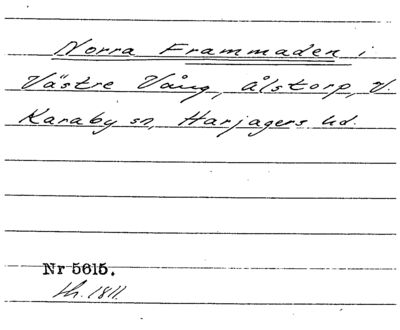 Norra Frammaden i
Västre Vång, Ålstorp, V.
Karaby sn, Harjagers hd.
Nr 5615.
1811.